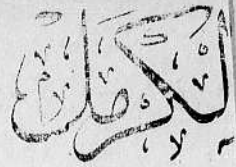 الكرمل